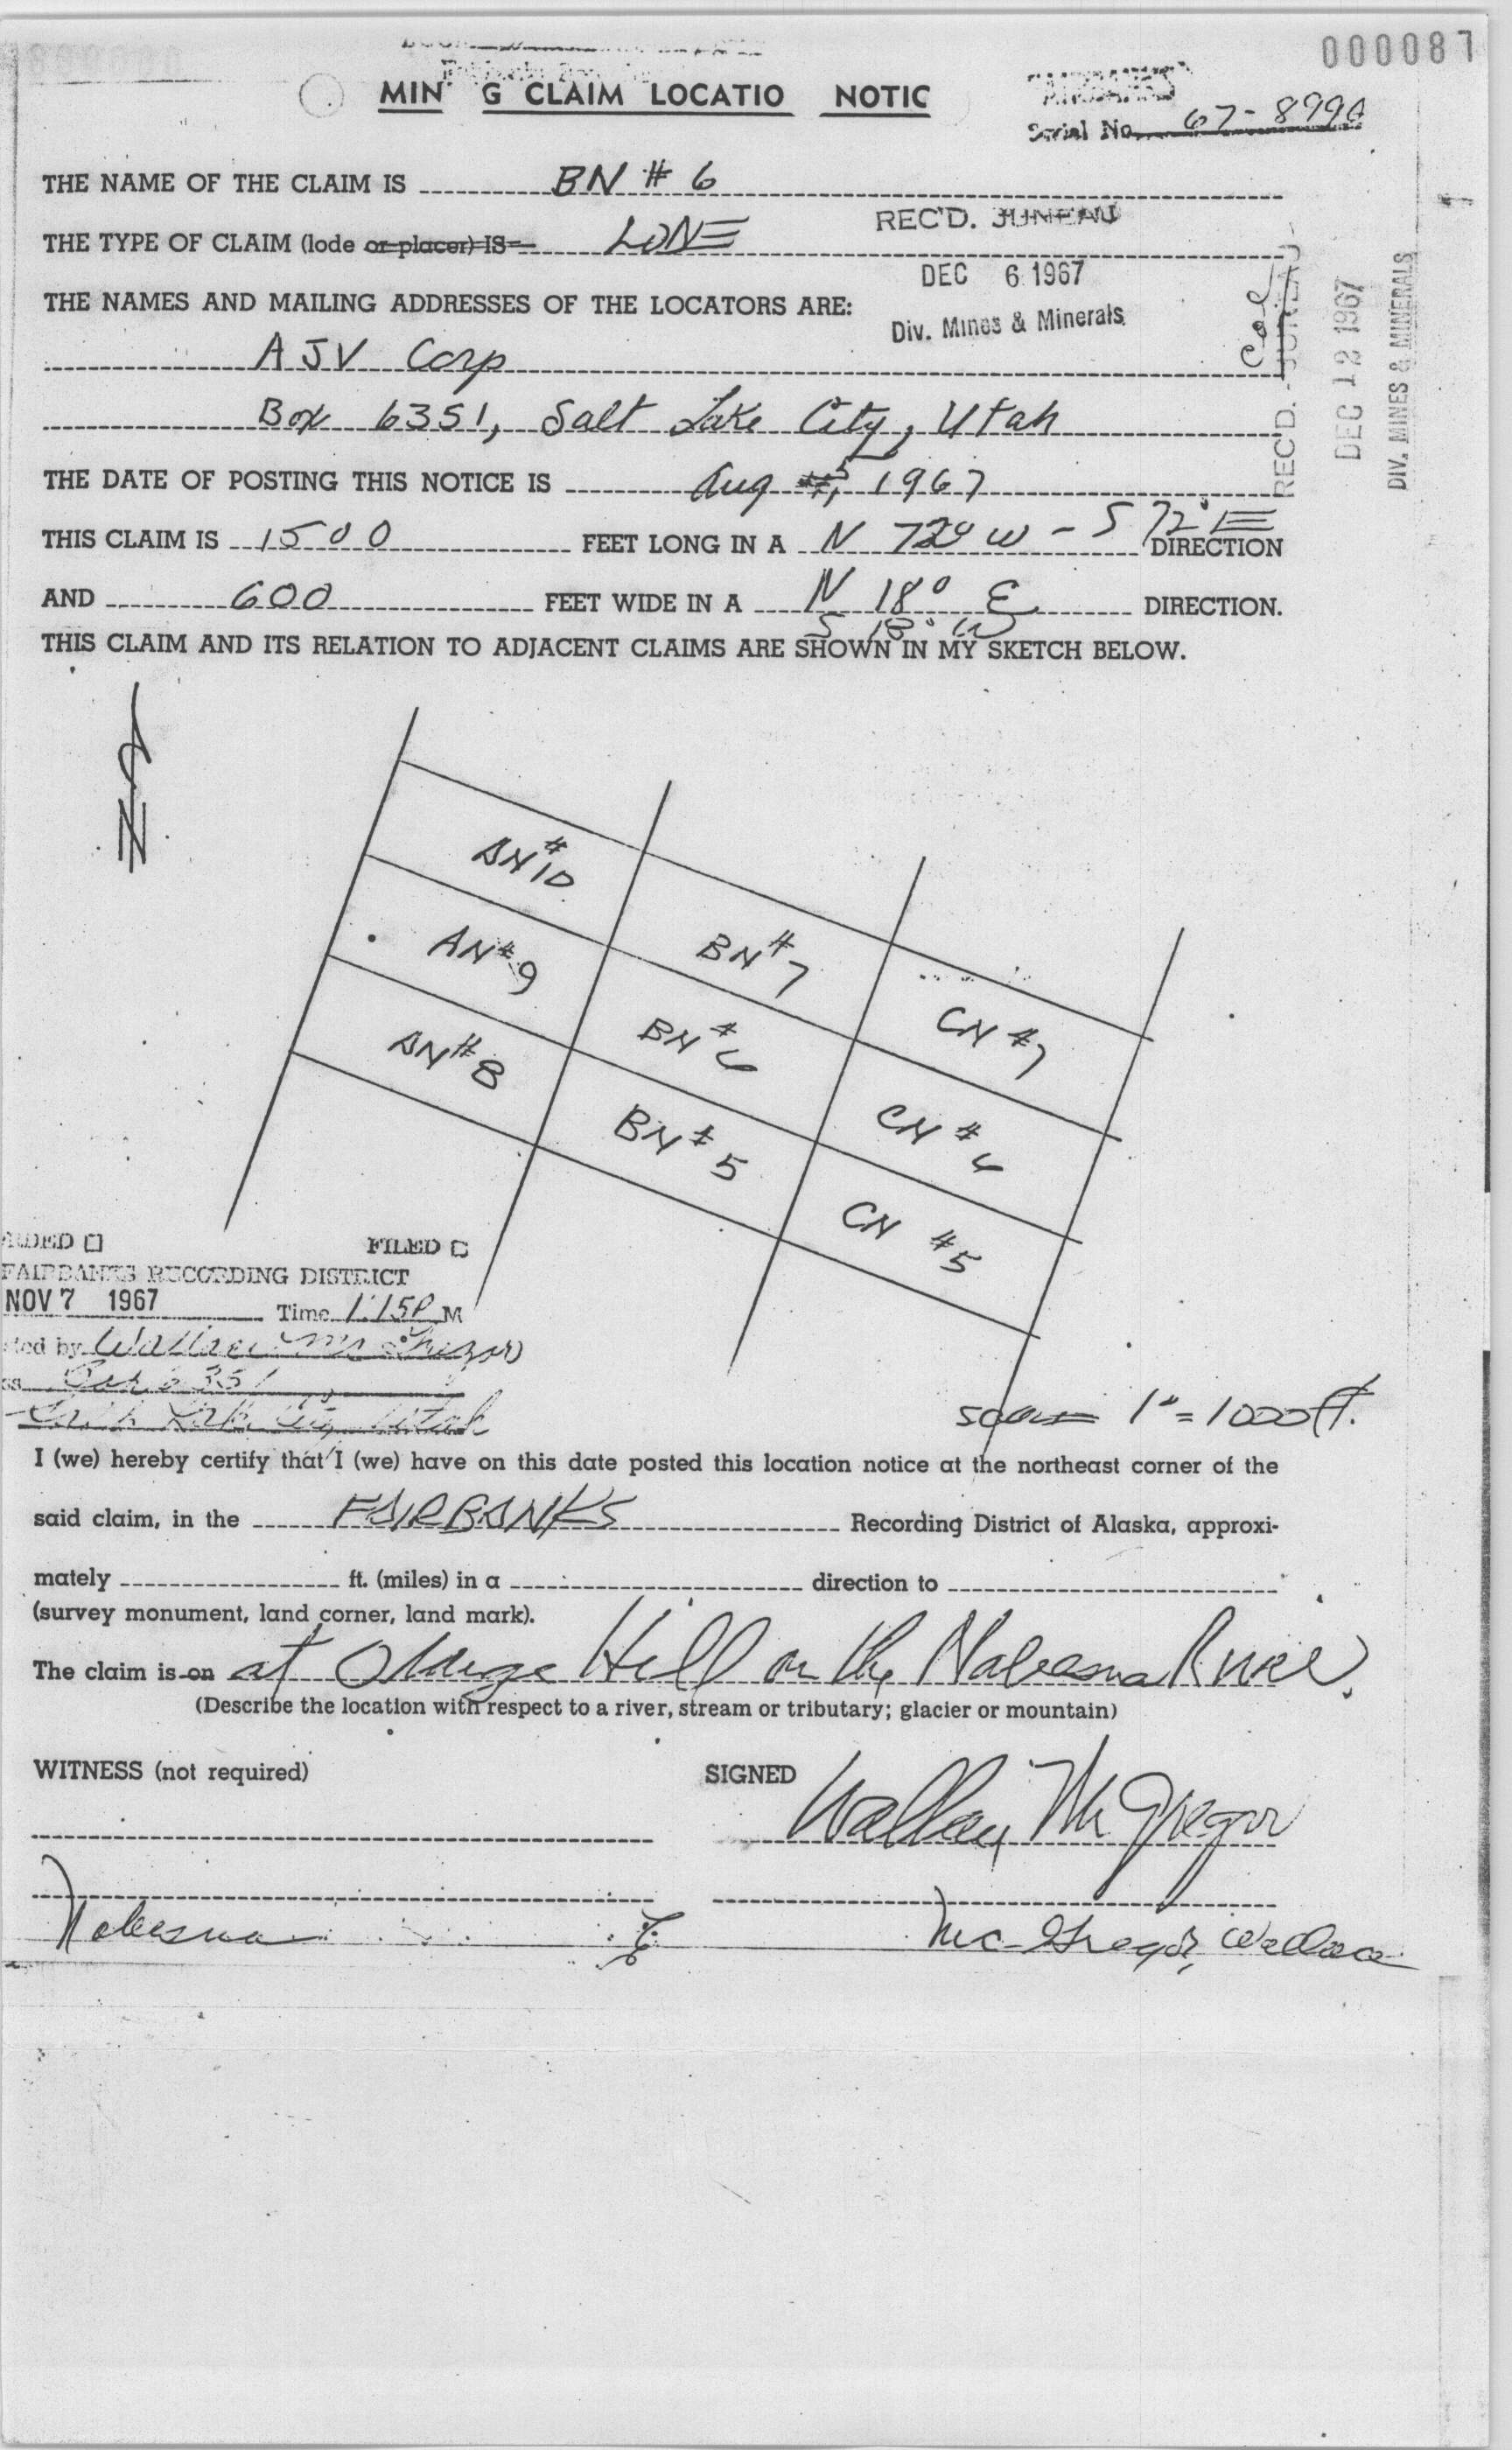 000087
MIN G CLAIM LOCATIO NOTIC
FAIRBANKS
Serial No. 67-8990
THE NAME OF THE CLAIM IS BN # 6
REC'D. JUNEAU
THE TYPE OF CLAIM (lode or placer) IS LODE
DEC 6 1967
THE NAMES AND MAILING ADDRESSES OF THE LOCATORS ARE:
Div. Mines & Minerals
AJV Corp
Box 6351, Salt Lake City, Utah
REC'D. - JUNEAU
DEC 12 1967
DIV. MINES & MINERALS
THE DATE OF POSTING THIS NOTICE IS Aug 5, 1967
THIS CLAIM IS 1500 FEET LONG IN A N 72° W - S 72° E DIRECTION
AND 600 FEET WIDE IN A N 18° E DIRECTION.
S 18° W
THIS CLAIM AND ITS RELATION TO ADJACENT CLAIMS ARE SHOWN IN MY SKETCH BELOW.
N
AN #10
AN #9
BN #7
AN #8
BN #6
CN #7
BN #5
CN #6
CN #5
FILED
FAIRBANKS RECORDING DISTRICT
NOV 7 1967 Time 1:15 P M
ted by Wallace McGregor
ss Box 6351
Salt Lake City Utah
scale 1" = 1000 ft.
I (we) hereby certify that I (we) have on this date posted this location notice at the northeast corner of the
said claim, in the FAIRBANKS Recording District of Alaska, approxi-
mately ft. (miles) in a direction to
(survey monument, land corner, land mark).
The claim is on at Orange Hill on the Nabesna River.
(Describe the location with respect to a river, stream or tributary; glacier or mountain)
WITNESS (not required) SIGNED Wallace McGregor
Nabesna McGregor, Wallace